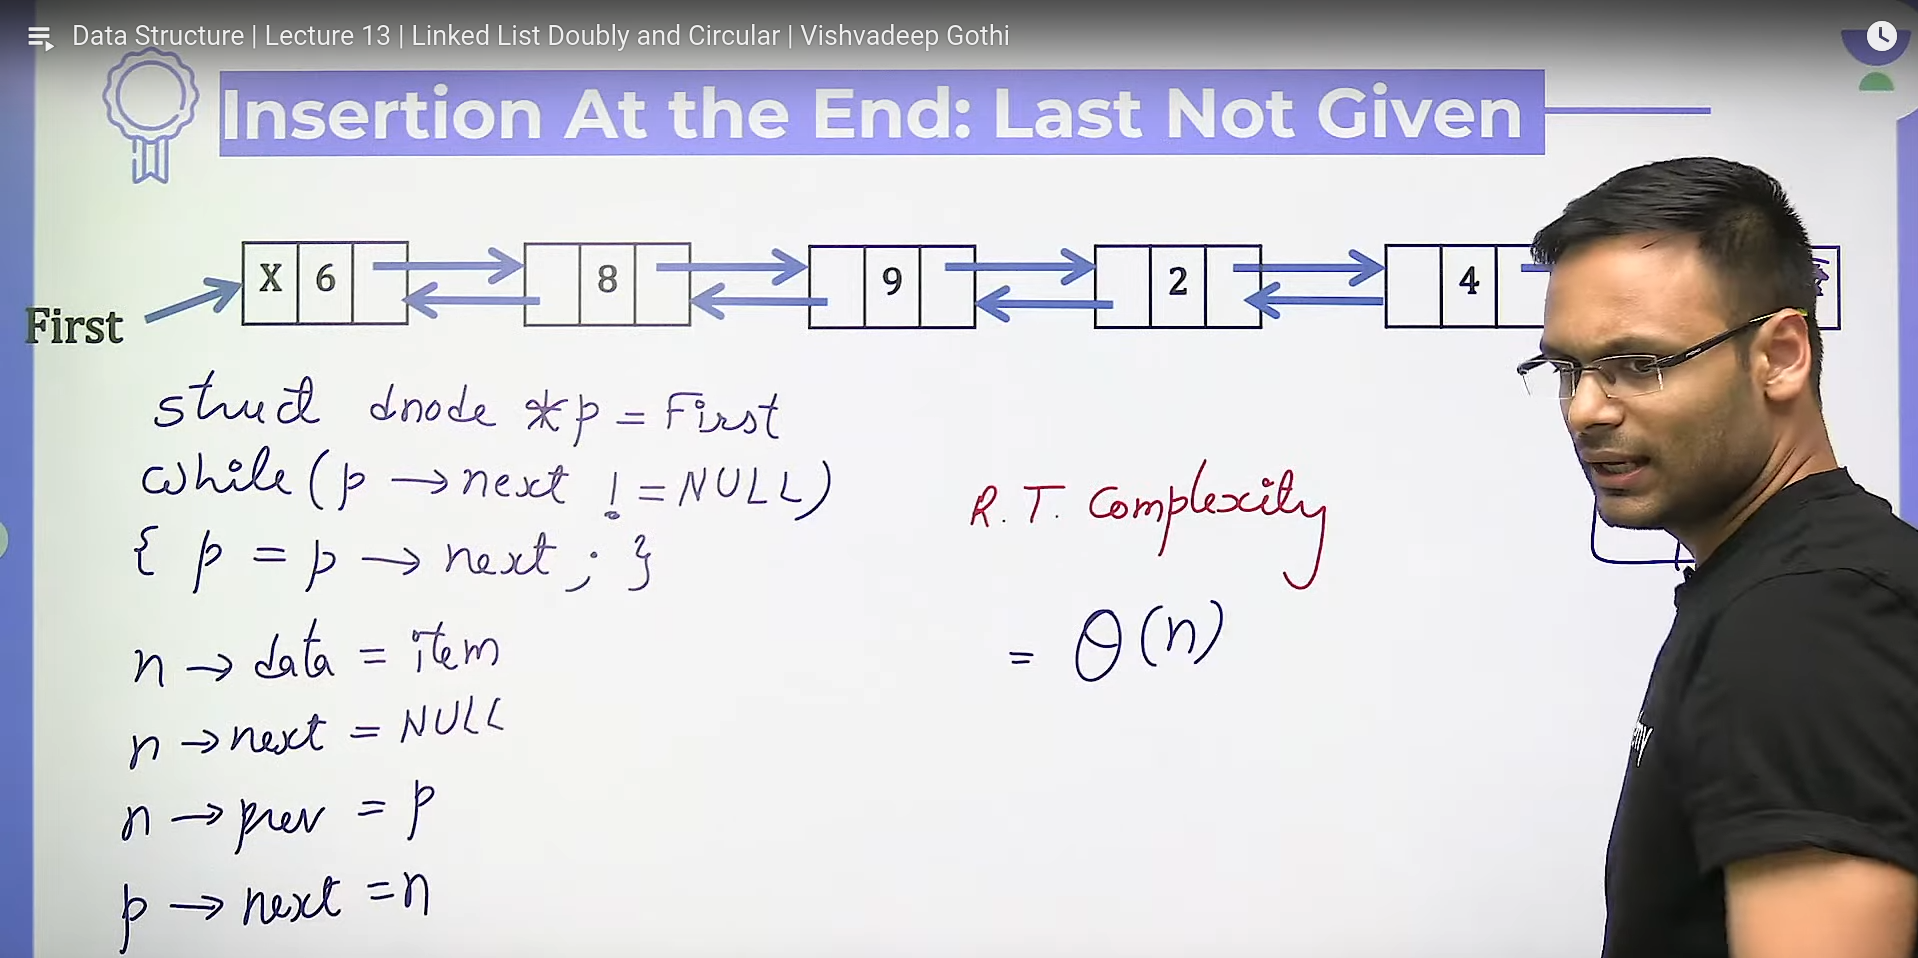 Data Structure | Lecture 13 | Linked List Doubly and Circular | Vishvadeep Gothi
Insertion At the End: Last Not Given
X 6 8 9 2 4
First
struct dnode *p = First
while (p → next != NULL)
{ p = p → next ; }
n → data = item
n → next = NULL
n → prev = p
p → next = n
R. T. Complexity
= θ(n)